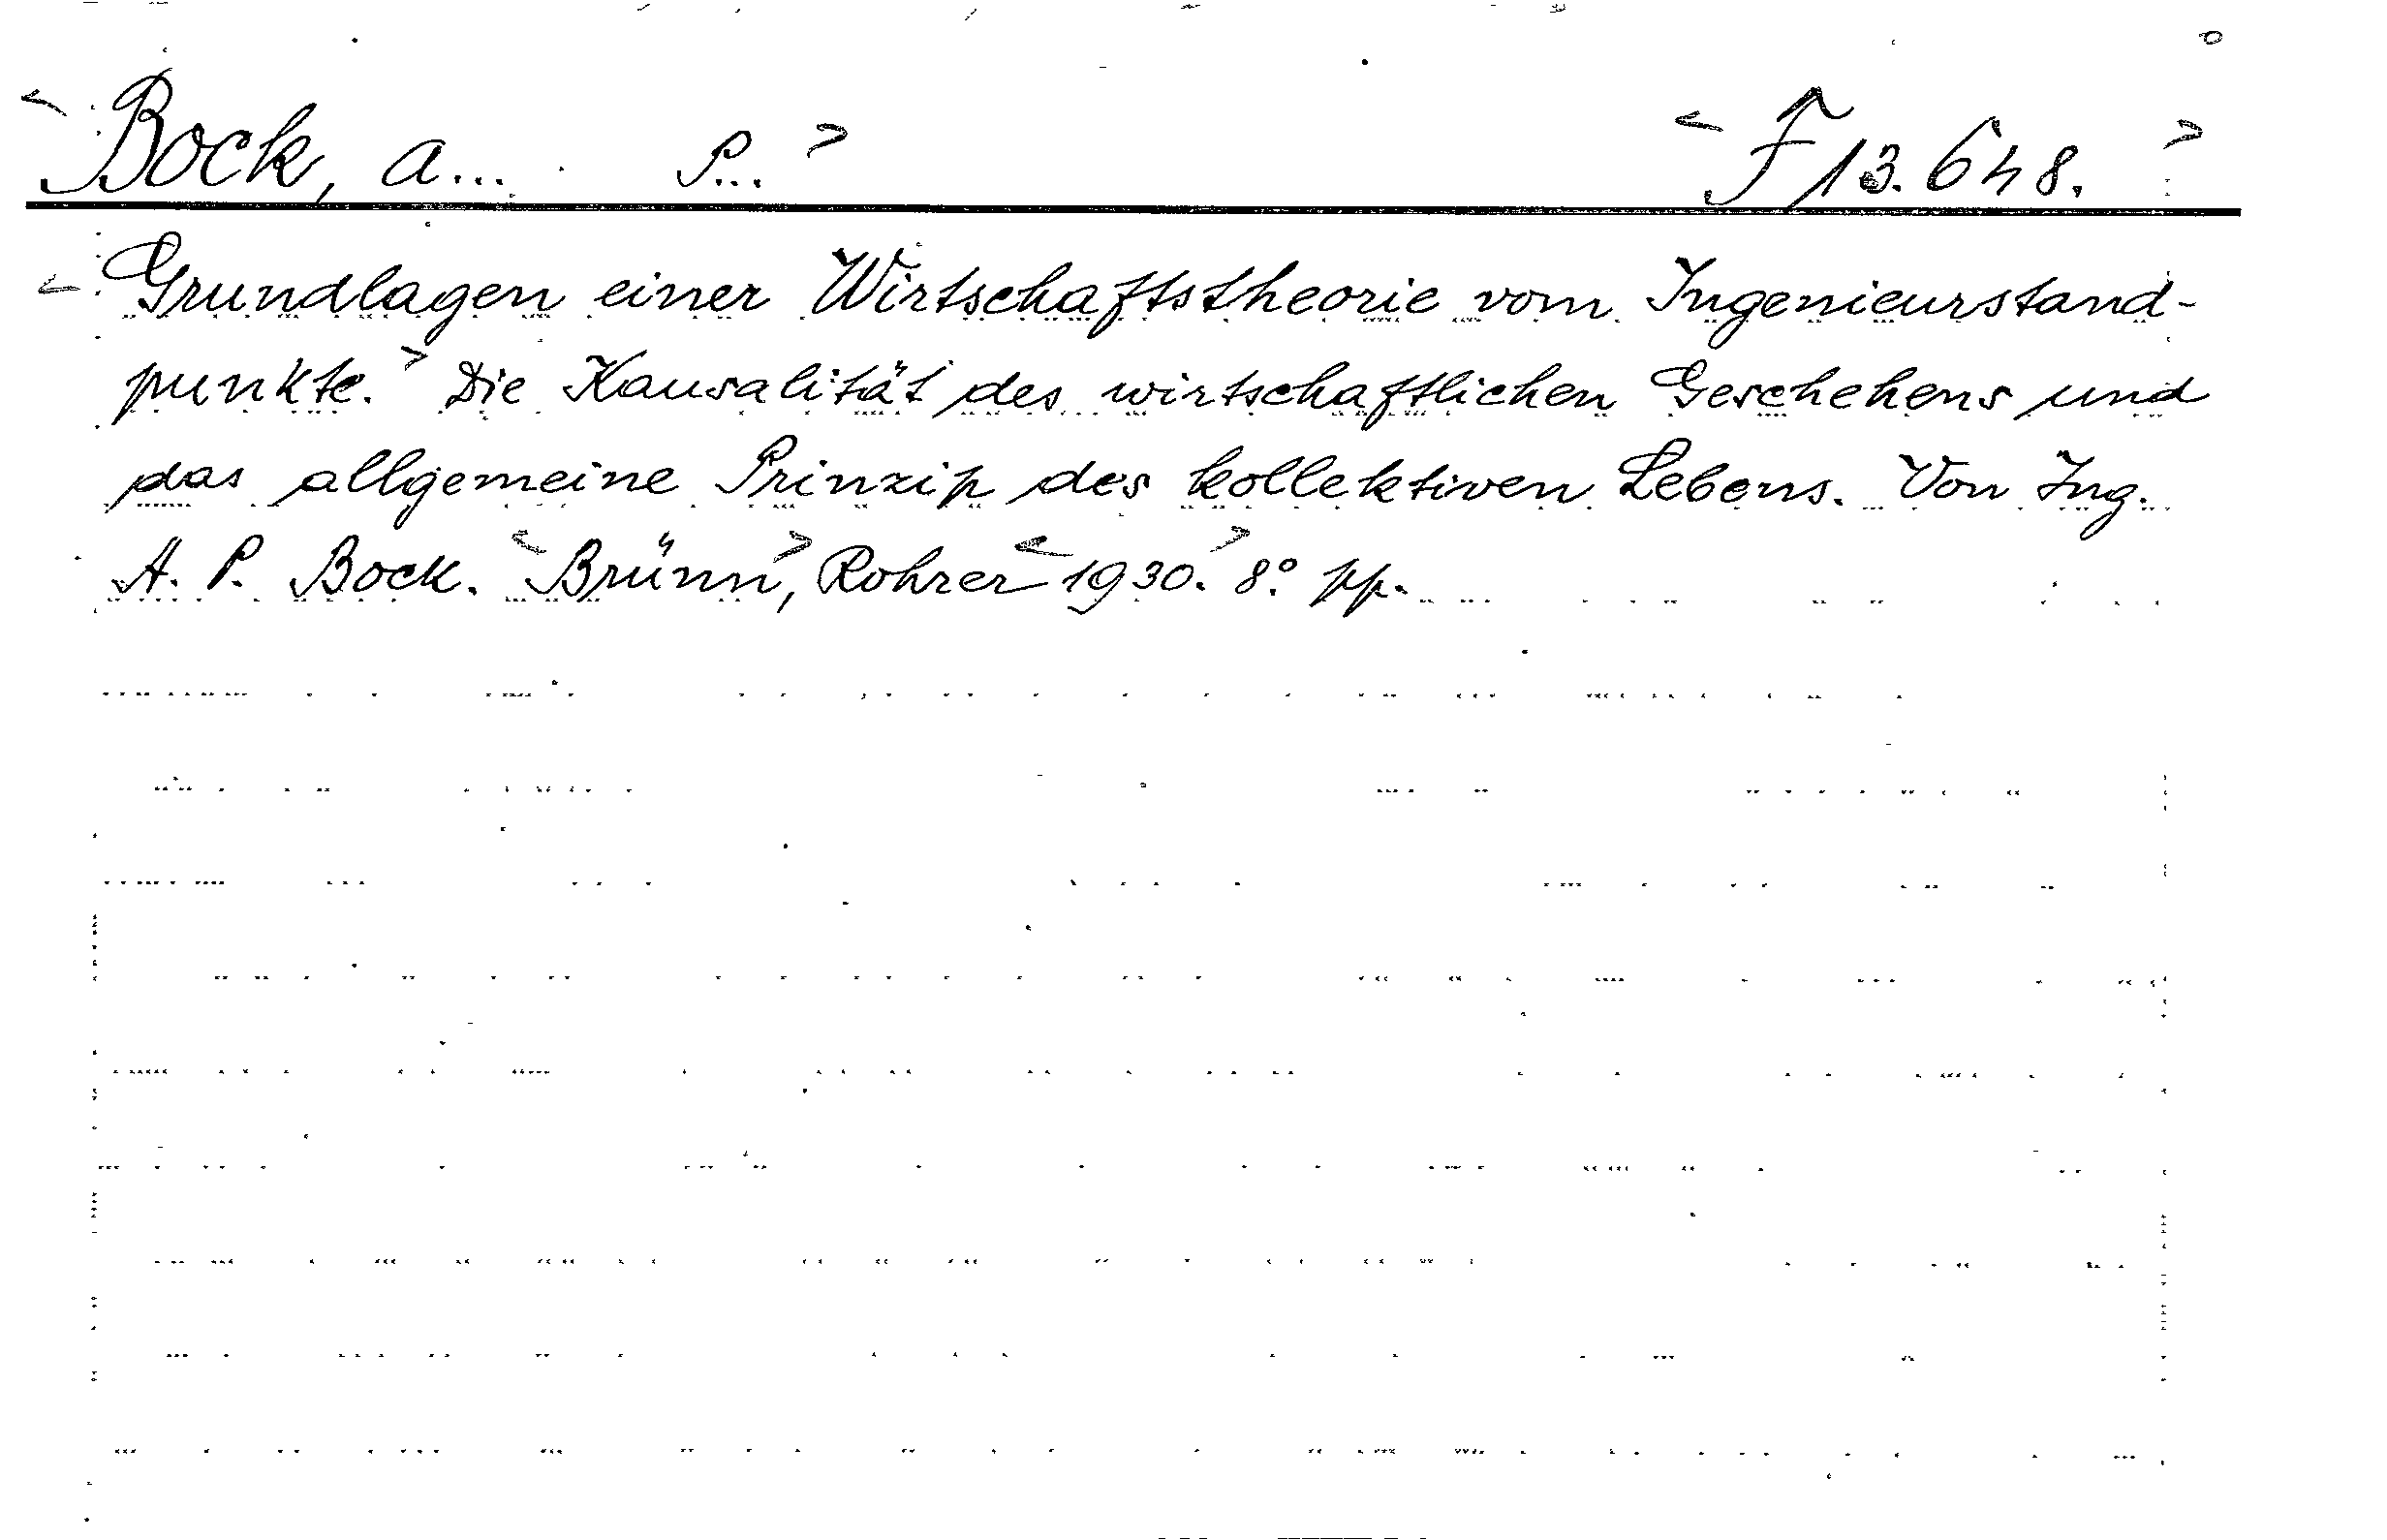 < Bock, A... P... > < F 13.648. >
< Grundlagen einer Wirtschaftstheorie vom Ingenieurstand-
punkte. > Die Kausalität des wirtschaftlichen Geschehens und
das allgemeine Prinzip des kollektiven Lebens. Von Ing.
A. P. Bock. < Brünn >, Rohrer < 1930. > 8° pp.